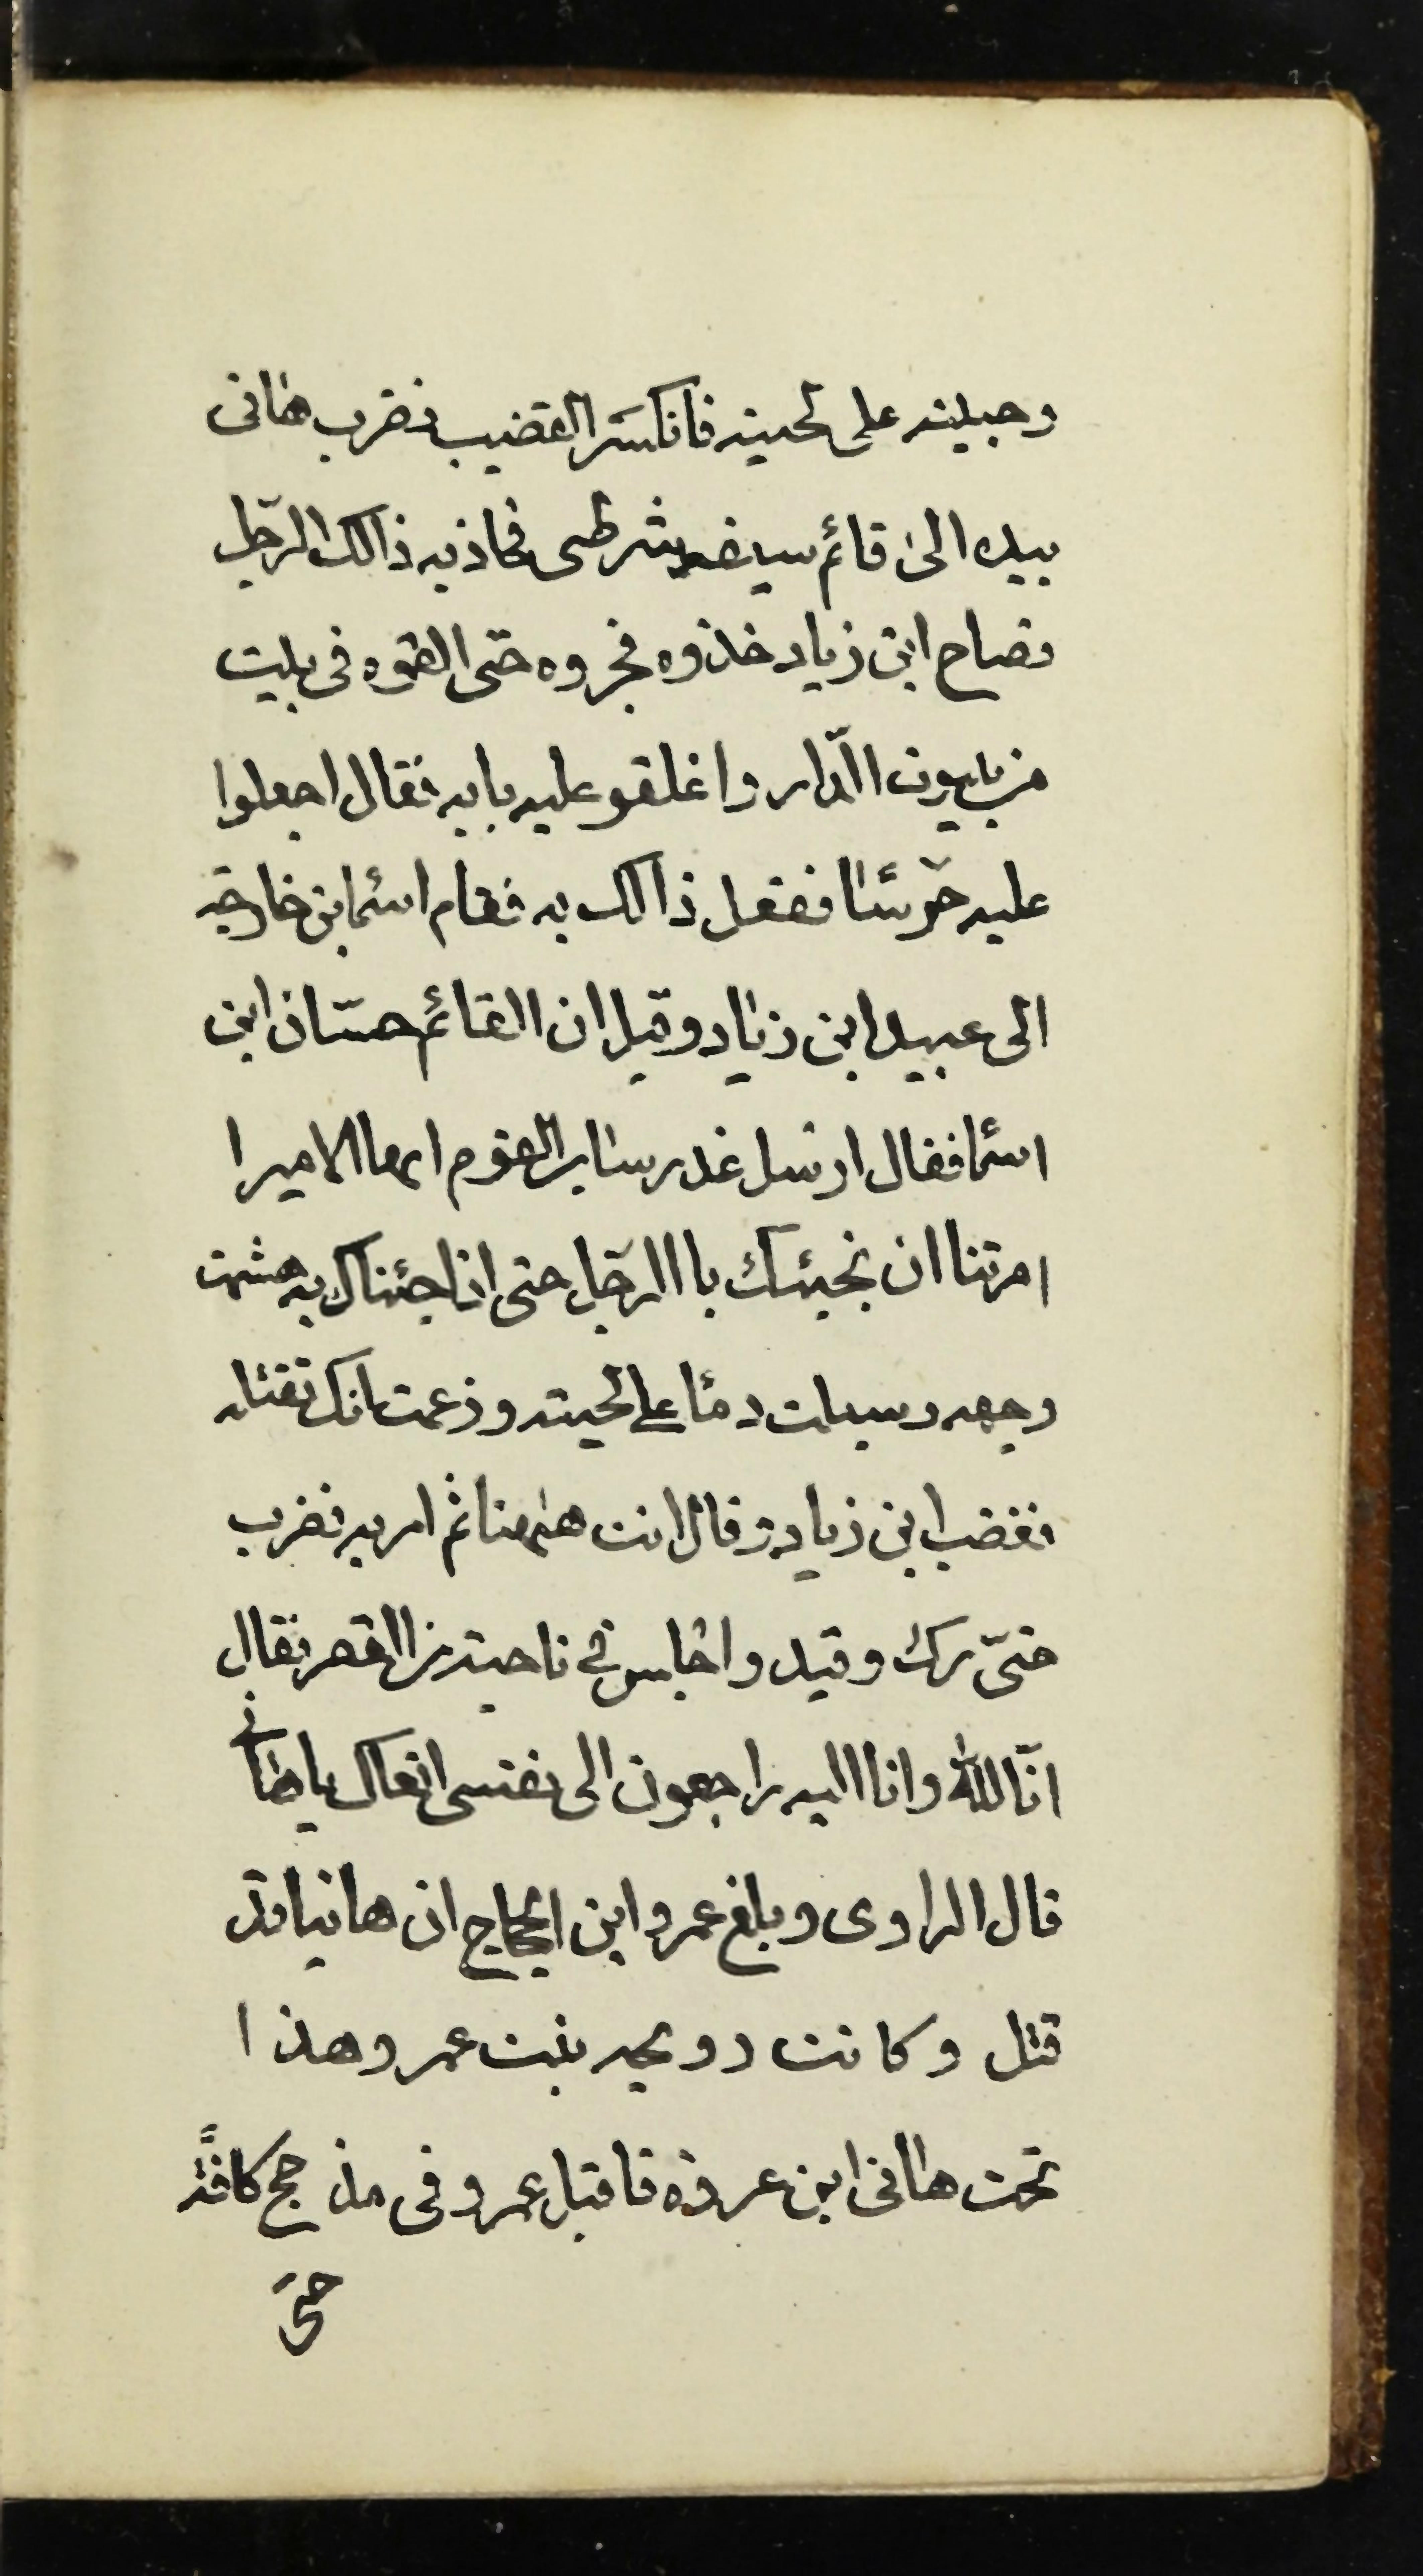 وجبينه على لحيته فانكسر القضيب فضرب هانى
بيده الى قائم سيف شرطى فجاذبه ذالك الرّجل
فصاح ابن زياد خذوه فجروه حتى القوه فى بيت
من بيوت الدّار واغلقو عليه بابه فقال اجعلوا
عليه حرسًا ففعل ذالك به فقام اسمٓا بن خارجه
الى عبيد ابن زياد وقيل ان القائم حسّان ابن
اسمٓا فقال ارسل غدر ساير القوم ايها الاميرا
امرتنا ان نجيئك باالرّجل حتى اذا جئناك به هشمت
وجهه وسيلت دمًا على لحيته وزعمت انك تقتله
فغضب ابن زياد وقال انت هٰهنا ثم امر به فضرب
حتىّ ترك وقيد واجلس فى ناحيته من القصر فقال
انّا لله وانا اليه راجعون الى نفسى انعاك ياهانى
قال الراوى وبلغ عمرو ابن الحجاج ان هانيا قد
قتل وكانت رويحه بنت عمر و هذا
تحت هانى ابن عروة فاقبل عمرو فى مذحج كافةً
حتىَ